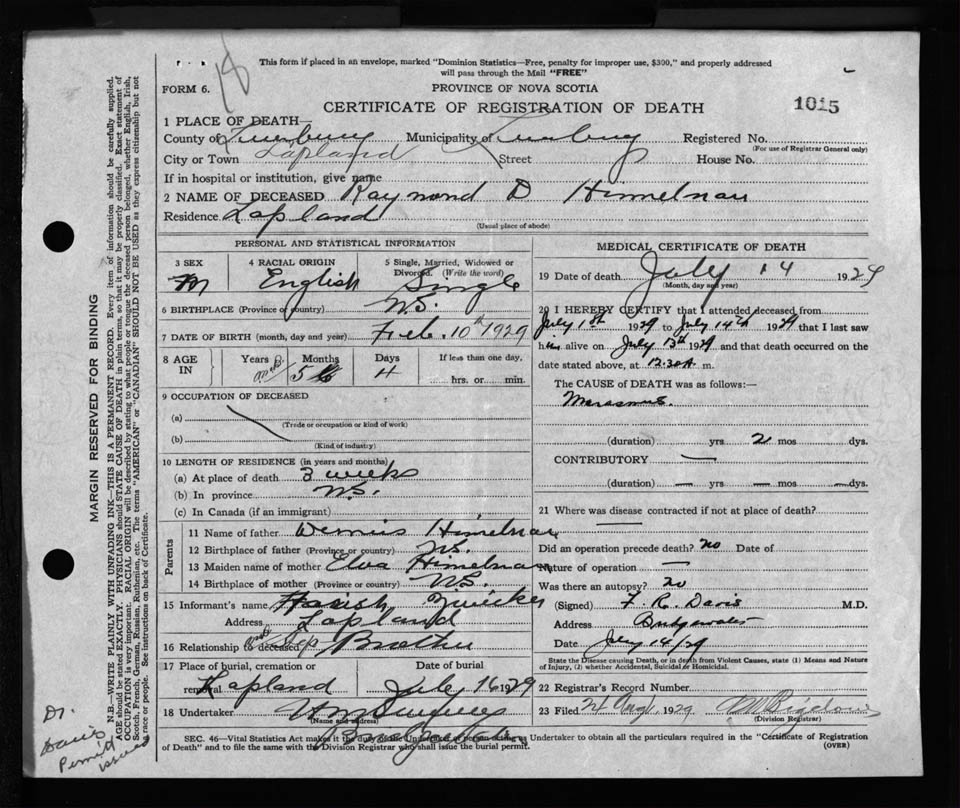 18
This form if placed in an envelope, marked "Dominion Statistics—Free, penalty for improper use, $300," and properly addressed
will pass through the Mail "FREE"
FORM 6.
PROVINCE OF NOVA SCOTIA
CERTIFICATE OF REGISTRATION OF DEATH
1015
1 PLACE OF DEATH—
County of Lunenburg Municipality of Lunenburg Registered No.
(For use of Registrar General only)
City or Town Lapland Street House No.
If in hospital or institution, give name
2 NAME OF DECEASED Raymond D Himelman
Residence Lapland
(Usual place of abode)
PERSONAL AND STATISTICAL INFORMATION
3 SEX 4 RACIAL ORIGIN 5 Single, Married, Widowed or
Divorced. (Write the word)
M English Single
6 BIRTHPLACE (Province or country) N.S.
7 DATE OF BIRTH (month, day and year) Feb. 10th 1929
8 AGE IN Years Months Days If less than one day,
5 4 hrs. or min.
9 OCCUPATION OF DECEASED
(a)
(Trade or occupation or kind of work)
(b)
(Kind of industry)
10 LENGTH OF RESIDENCE (in years and months)
(a) At place of death 3 weeks
(b) In province N.S.
(c) In Canada (if an immigrant)
Parents
11 Name of father Dennis Himelman
12 Birthplace of father (Province or country) N.S.
13 Maiden name of mother Elva Himelman
14 Birthplace of mother (Province or country) N.S.
15 Informant's name Zwicker
Address Lapland
16 Relationship to deceased Step Brother
17 Place of burial, cremation or
removal Lapland
Date of burial
July 16 1929
18 Undertaker
(Name and address)
Bridgewater
MEDICAL CERTIFICATE OF DEATH
19 Date of death July 14 1929
(Month, day and year)
20 I HEREBY CERTIFY that I attended deceased from
July 1st 1929 to July 14th 1929 that I last saw
him alive on July 13th 1929 and that death occurred on the
date stated above, at 12.30 A. m.
The CAUSE OF DEATH was as follows:—
Marasmus.
(duration) yrs 2 mos dys.
CONTRIBUTORY —
(duration) — yrs — mos — dys.
21 Where was disease contracted if not at place of death?
Did an operation precede death? no Date of
Nature of operation —
Was there an autopsy? no
(Signed) F. R. Davis M.D.
Address Bridgewater
Date July 14/29
State the Disease causing Death, or in death from Violent Causes, state (1) Means and Nature
of Injury, (2) whether Accidental, Suicidal or Homicidal.
22 Registrar's Record Number
23 Filed 21 Aug 1929
(Division Registrar)
SEC. 46—Vital Statistics Act makes it the duty of the Undertaker or person acting as Undertaker to obtain all the particulars required in the "Certificate of Registration
of Death" and to file the same with the Division Registrar who shall issue the burial permit.
(OVER)
MARGIN RESERVED FOR BINDING
N.B.—WRITE PLAINLY WITH UNFADING INK—THIS IS A PERMANENT RECORD. Every item of information should be carefully supplied.
AGE should be stated EXACTLY. PHYSICIANS should STATE CAUSE OF DEATH in plain terms, so that it may be properly classified. Exact statement of
OCCUPATION is very important. RACIAL ORIGIN will be described by stating to what people or tongue the deceased person belonged, whether English, Irish,
Scotch, French, German, Russian, Ruthenian, etc. The terms "AMERICAN" or "CANADIAN" SHOULD NOT BE USED as they express citizenship but not
race or people. See instructions on back of Certificate.
Dr.
Davis
Permit
issued